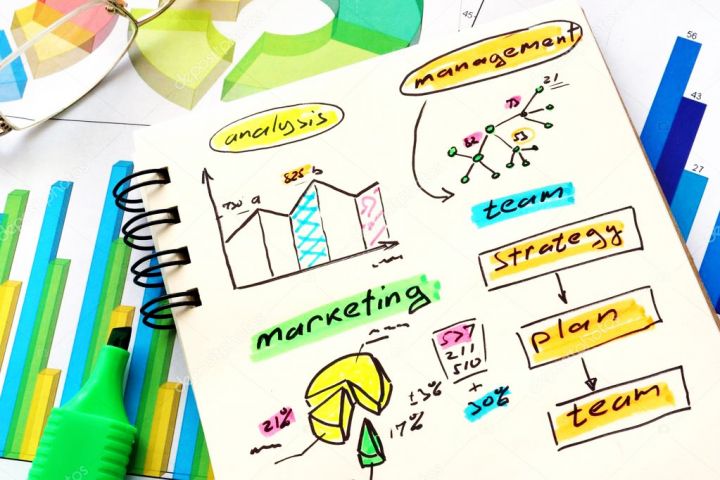 analysis
management
21
73
82
53
730 a
825 b
team
strategy
marketing
plan
537
211
510
+
30%
±3%
21%
17%
team
45
56
43
27